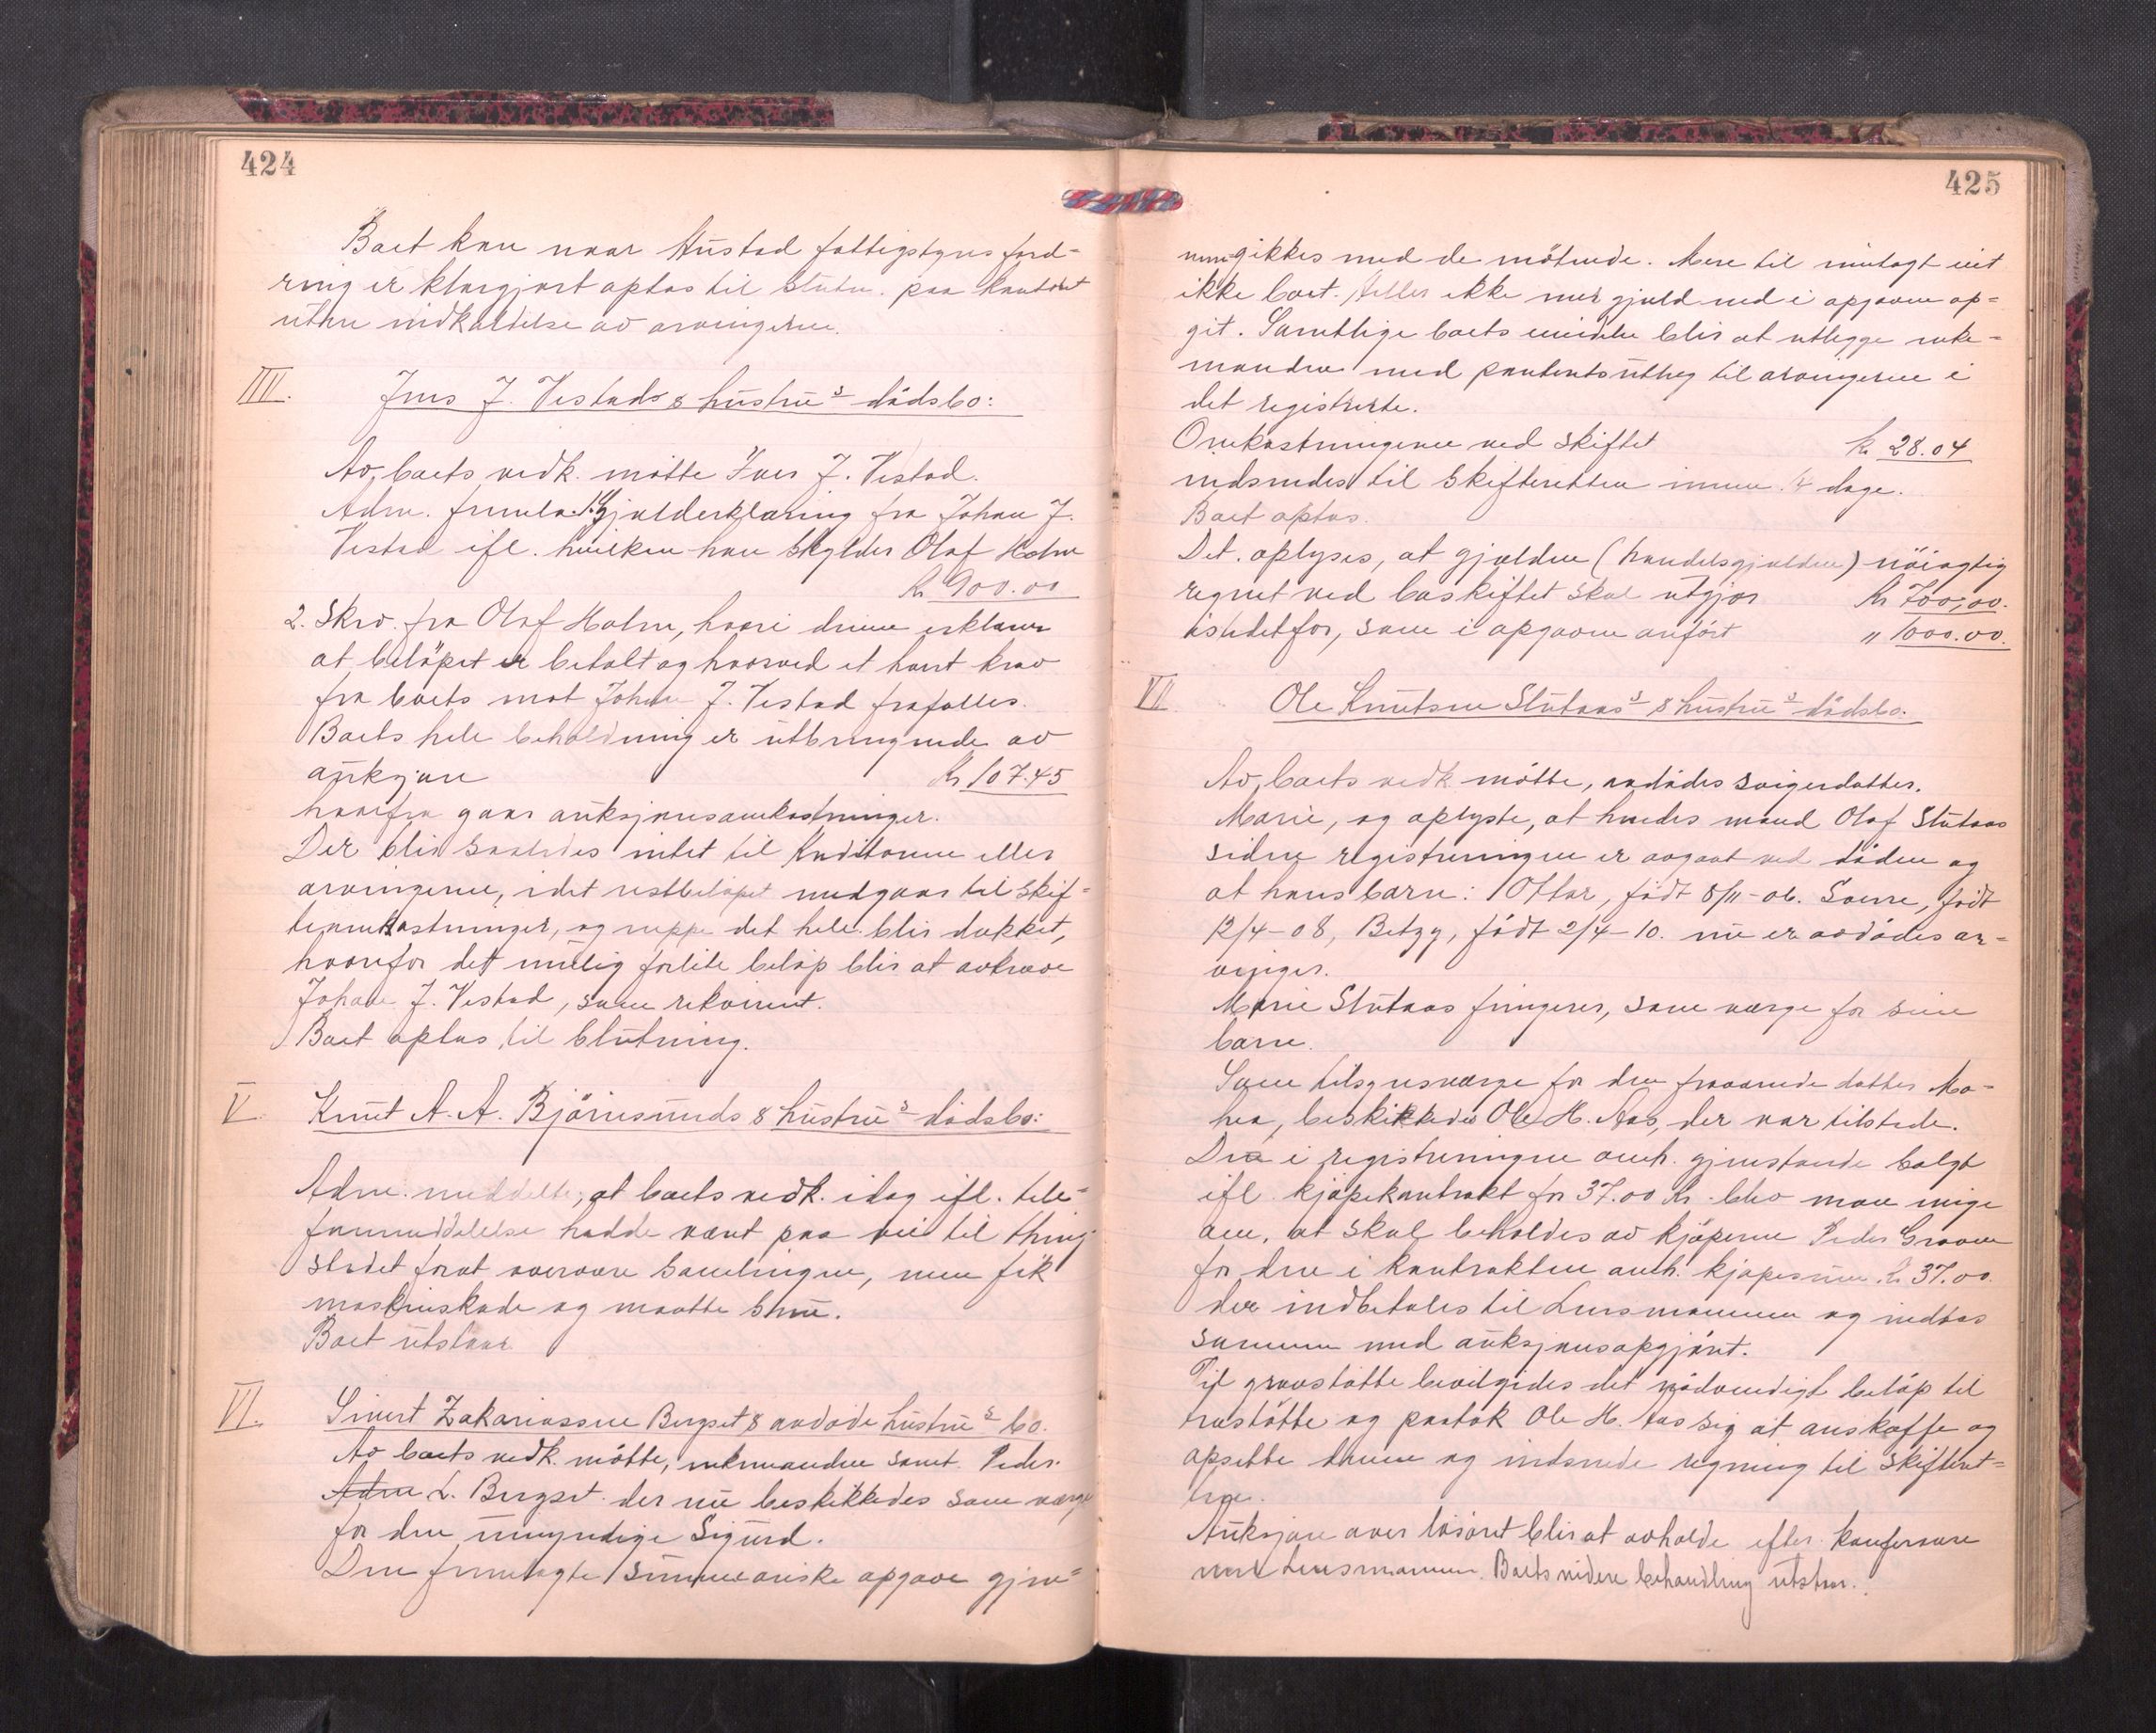 424
Boet kan naar Hustad fattigstyres ford-
ring er klargjort optas til slutn. paa kontoret
uten indkaldelse av arvingerne.
IIII. Jens J. Vestads & hustrus dödsbo:
Av boets vedk. mötte Iver J. Vestad.
Adm. freml. 1. gjældserklæring fra Johan J.
Vestad ifl. hvilken han skylder Olaf Holm
Kr 900.00
2. Skrv. fra Olaf Holm, hvori denne erklærer
at belöpet er betalt og hvorved et hvert krav
fra boets mot Johan J. Vestad frafalles.
Boets hele beholdning er utbringende av
auksjon Kr 107.45
hvorfra gaar auksjonsomkostninger.
Der blir saaledes intet til kreditorerne eller
arvingerne, idet restbelöpet medgaar til skif-
teomkostninger, og neppe det hele blir dækket,
hvorfor det mulig forlite belöp blir at avkræve
Johan J. Vestad, som rekvirent.
Boet optas til slutning.
V. Knut A. A. Björnsunds & hustrus dödsbo:
Adm. meddelte, at boets vedk. idag ifl. tele-
fonmeddelelse hadde været paa vei til thing-
stedet forat overvære samlingen, men fik
maskinskade og maatte snu.
Boet utstaar
VI. Sivert Zakariassen Bergset & avdöde hustrus bo.
Av boets vedk. mötte, enkemanden samt Peder
Adm L. Bergset der nu beskikkedes som værge
for den umyndige Sigurd.
Den fremlagte summariske opgave gjen-
425
nemgikkes med de mötende. Mere til indtægt eiet
ikke boet. Heller ikke mer gjæld end i opgaven op-
git. Samtlige boets midler blir at utlegge enke-
manden med panteutlæg til arvingerne i
det registrerte.
Omkostningerne ved skiftet Kr 28.04
indsendes til skifteretten innen 14 dage.
Boet optas.
Det oplyses, at gjælden (handelsgjælden) nöiagtig
regnet ved boskiftet skal utgjör Kr 700.00.
istedetfor, som i opgaven anfört " 1000.00.
VII. Ole Knutsen Stutaas & hustrus dödsbo.
Av boets vedk mötte, avdödes svigerdatter.
Marie, og oplyste, at hendes mand Olaf Stutaas
siden registreringen er avgaat ved döden og
at hans barn: Ottar, födt 8/11-06. Sverre, födt
12/4-08, Betzy, födt 2/4-10. nu er avdödes ar-
vinger.
Marie Stutaas fungerer, som værge for sine
barn.
Som tilsynsværge for den fraværende datter Ma-
rea, beskikkedes Ole H. Aas, der var tilstede.
De i registreringen omh. gjenstande solgt
ifl. kjöpekontrakt for 37.00 kr. blev man enige
om, at skal beholdes av kjöperen Peder Graven
for den i kontrakten omh. kjöpesum kr 37.00.
der indbetales til Lensmannen og indtas
sammen med auksjonsopgjöret.
Til gravstötte bevilgedes det nödvendigt belöp til
enstötte og paatok Ole H. Aas sig at anskaffe og
opsætte denne og indsende regning til skifteret-
ten.
Auksjon over lösöret blir at avholde efter konferanse
med Lensmannen. Boets videre behandling utstaar.